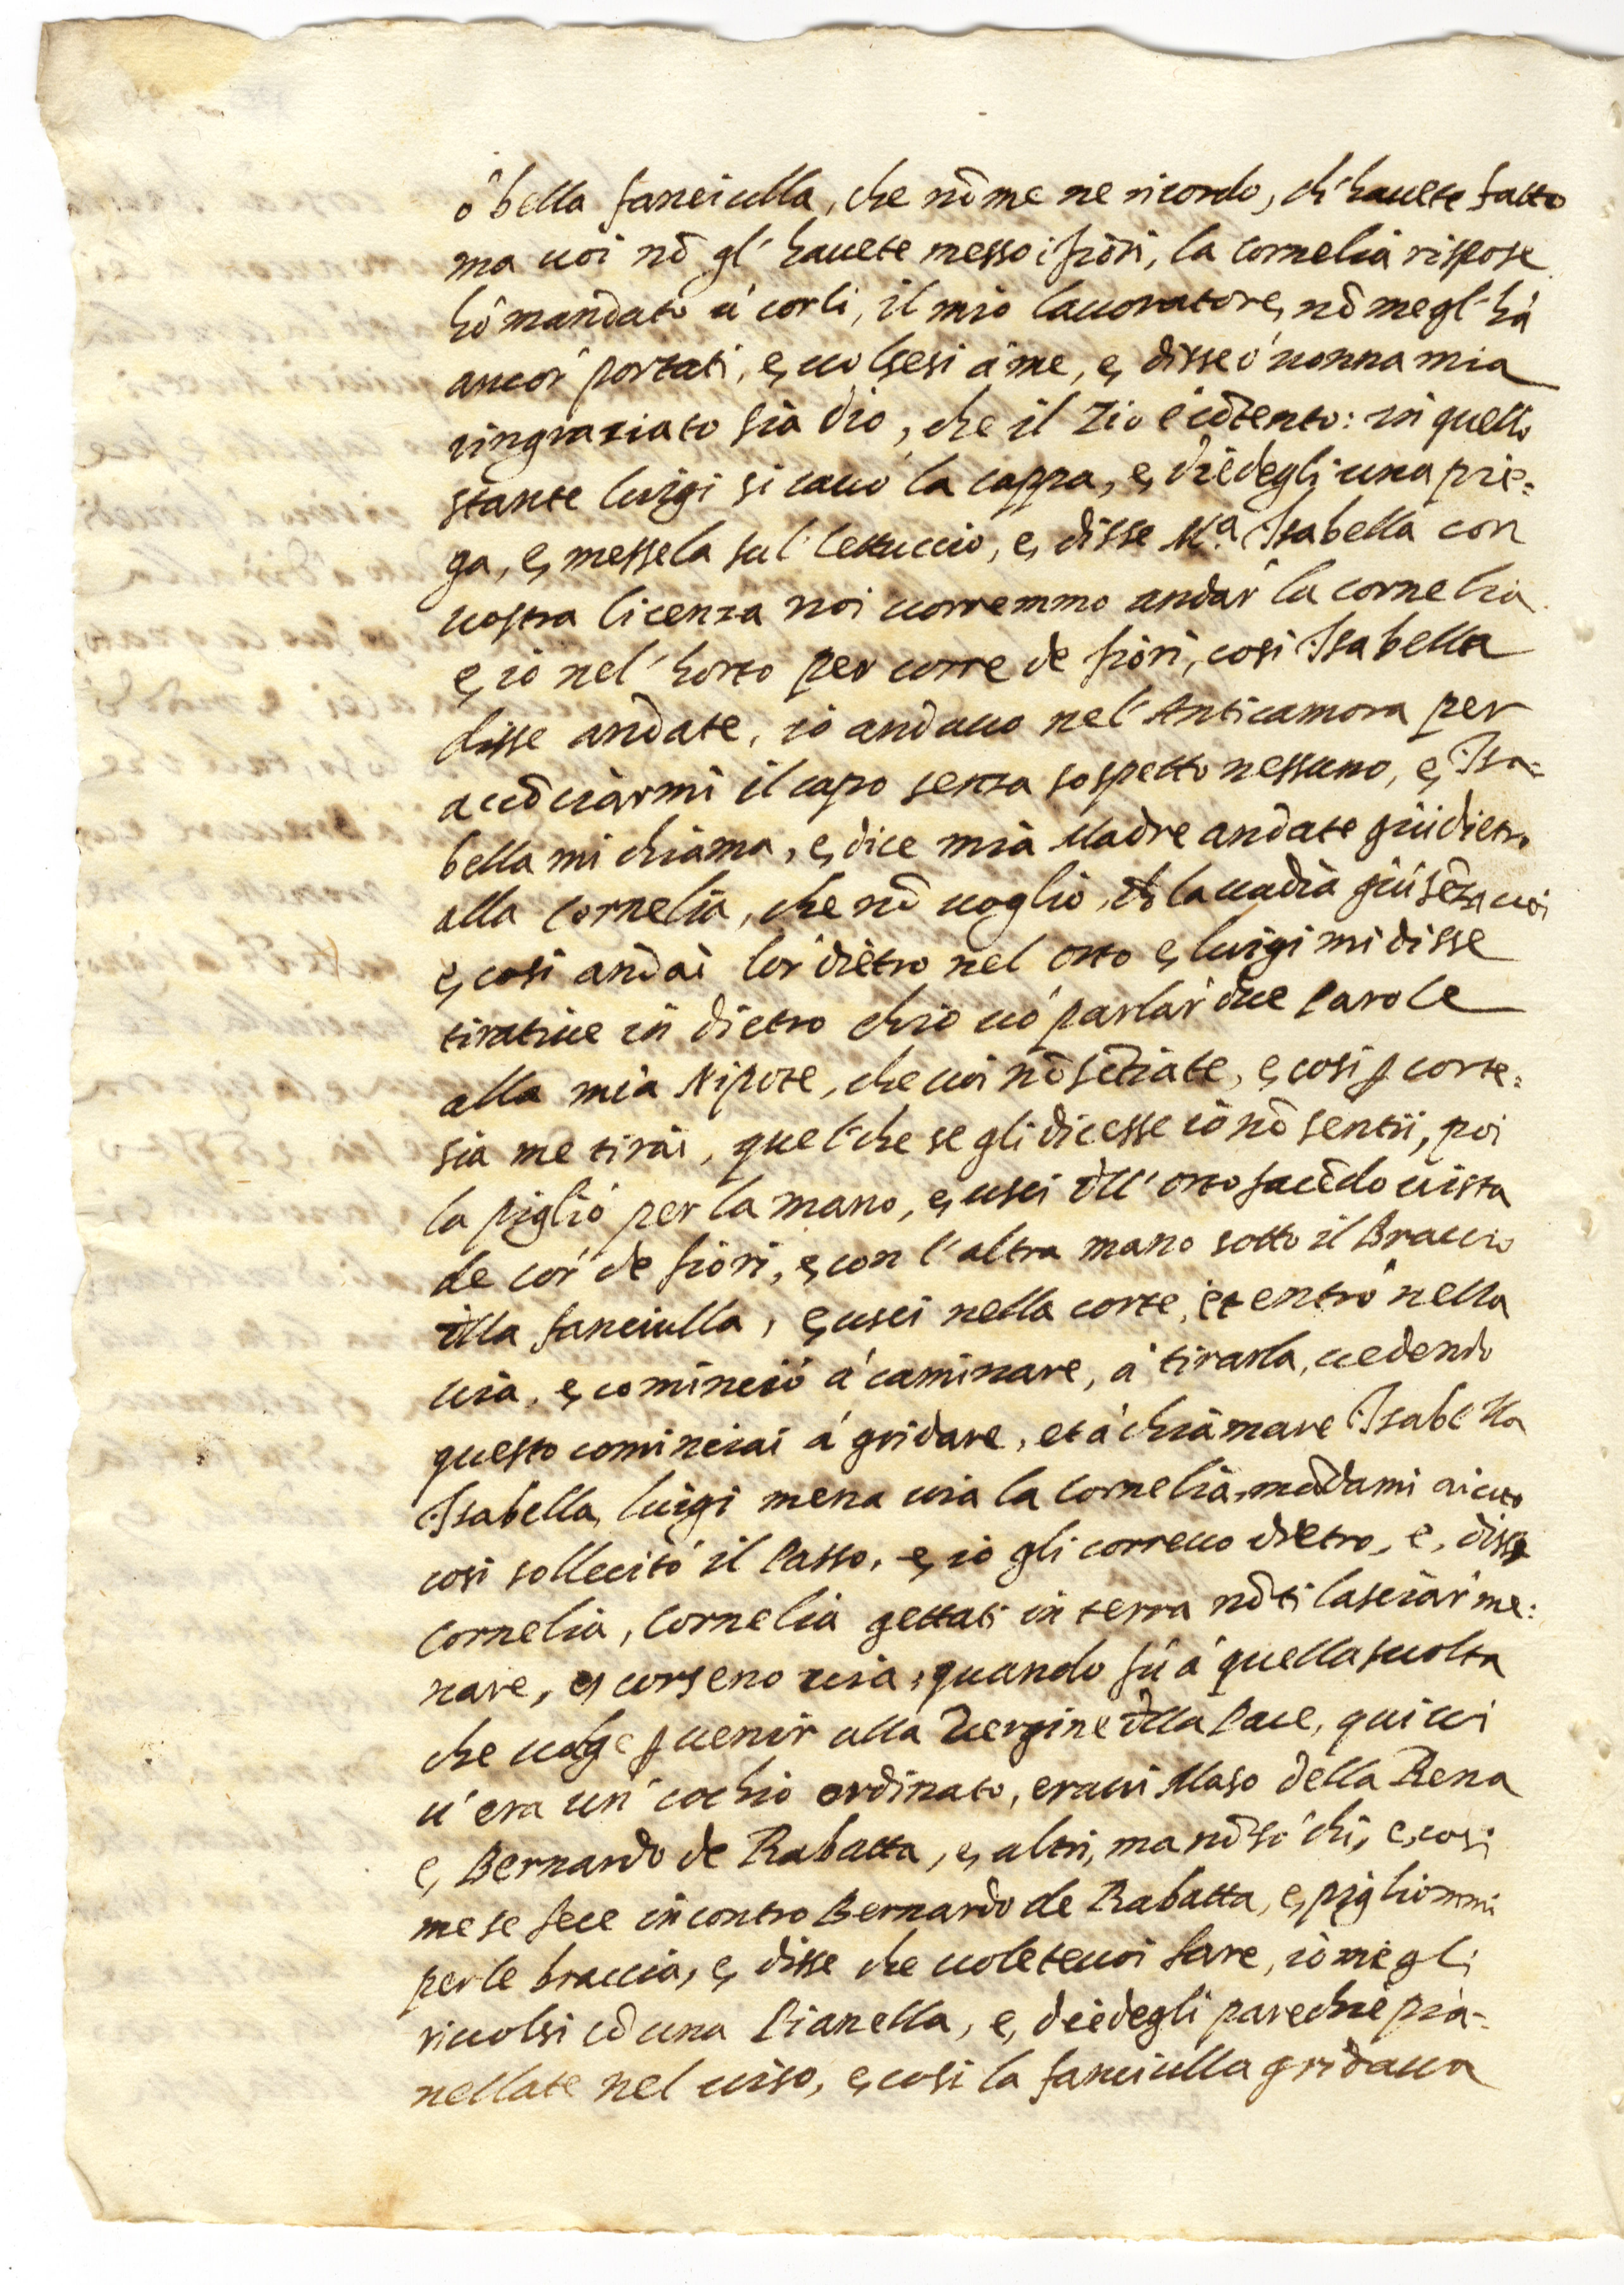 ò bella fanciulla, che nõ me ne ricordo, ch'hauete fatto
ma uoi nõ gl'hauete messo i fiori, la Cornelia rispose
hò mandato à corli, il mio lauoratore, nõ me gl'hà
ancor portati, e, uolsesi à me, e, disse ò nonna mia
ringraziato sia dio, che il Zio è cõtento: in quello
stante luigi si cauò la cappa, e, diedegli una pie=
ga, e, messela sul lettuccio, e, disse M.ª Isabella con
uostra licenza noi uorremmo andar la cornelia
e, io nel'horto per corre de fiori, cosi Isabella
disse andate, io andauo nel'Anticamora per
accõciarmi il capo senza sospetto nessuno, e, Isa=
bella mi chiama, e, dice mia Madre andate giù dietro
alla Cornelia, che nõ uoglio, ch la uadia giù sẽza uoi
e, cosi andai lor dietro nel Orto e, luigi mi disse
tirateue in dietro chio uò parlar due Parole
alla mia Nipote, che uoi nõ sẽtiate, e, cosi p corte=
sia me tirai, quel'che se gli dicesse io nõ sentij, poi
la pigliò per la mano, e, uscì dll'orto facẽdo uista
de cor de fiori, e, con l'altra mano sotto il Braccio
dlla fanciulla, e, uscì nella corte, et entrò nella
uia, e, cominciò à caminare, à tirarla, uedendo
questo cominciai à gridare, et à chiamare Isabella
Isabella, luigi mena uia la Cornelia, mãdami aiuto
cosi sollecitò il Passo, e, io gli correuo dietro, e, dissi
Cornelia, Cornelia gettati in terra nõ ti lasciar me:
nare, e, corseno uia, quando fù à quella suolta
che uolge p uenir alla Vergine dlla Pace, quiui
u'era un'cochio ordinato, eraui Maso della Rena
e, Bernardo de Rabatta, e, altri, ma nõ sò chi, e, cosi
me se fece incontro Bernardo de Rabatta, e, pigliommi
per le braccia, e, disse che uolete uoi fare, io me gli
riuolsi cõ una Pianella, e, diedegli parechie pia=
nellate nel uiso, e, cosi la fanciulla gridaua